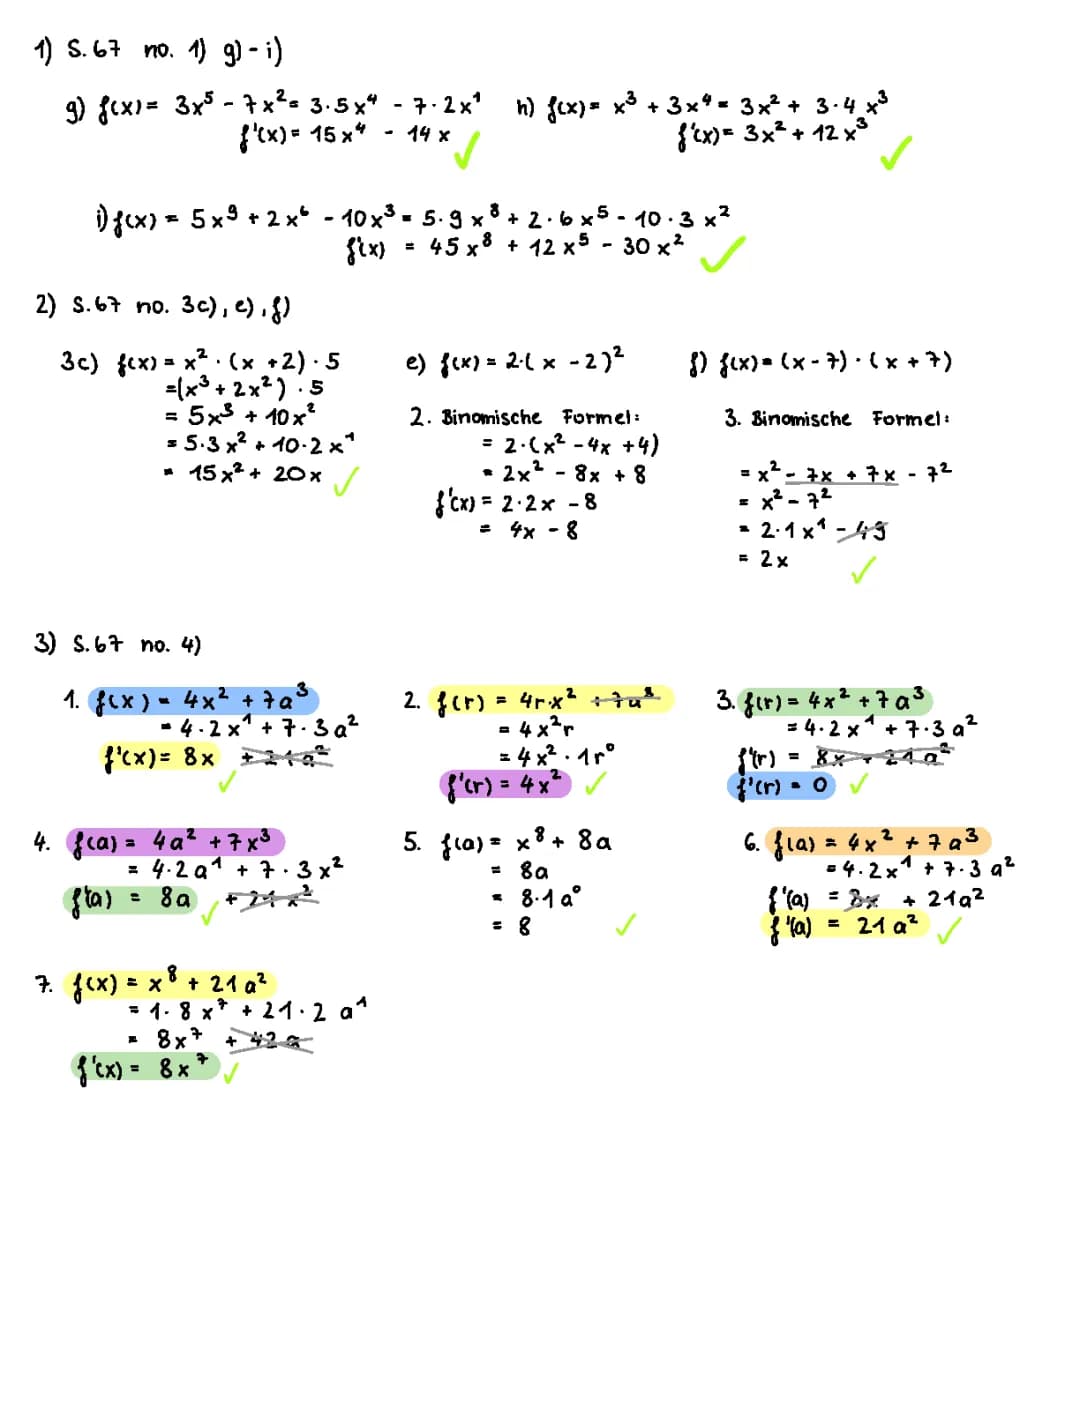 1) S.67 no. 1) g) - i)
g) f(x) = 3x⁵ - 7x² = 3·5x⁴ - 7·2x¹
f'(x) = 15x⁴ - 14x
h) f(x) = x³ + 3x⁴ = 3x² + 3·4x³
f'(x) = 3x² + 12x³
i) f(x) = 5x⁹ + 2x⁶ - 10x³ = 5·9x⁸ + 2·6x⁵ - 10·3x²
f'(x) = 45x⁸ + 12x⁵ - 30x²
2) S.67 no. 3c), e), f)
3c) f(x) = x² · (x + 2) · 5
= (x³ + 2x²) · 5
= 5x³ + 10x²
= 5·3x² + 10·2x¹
= 15x² + 20x
e) f(x) = 2·(x - 2)²
2. Binomische Formel:
= 2·(x² - 4x + 4)
= 2x² - 8x + 8
f'(x) = 2·2x - 8
= 4x - 8
f) f(x) = (x - 7) · (x + 7)
3. Binomische Formel:
= x² - 7x + 7x - 7²
= x² - 7²
= 2·1x¹ - 49
= 2x
3) S.67 no. 4)
1. f(x) = 4x² + 7a³
= 4·2x¹ + 7·3a²
f'(x) = 8x + 21a²
2. f(r) = 4r·x² + 7a³
= 4x²r
= 4x² · 1r⁰
f'(r) = 4x²
3. f(r) = 4x² + 7a³
= 4·2x¹ + 7·3a²
f'(r) = 8x + 21a²
f'(r) = 0
4. f(a) = 4a² + 7x³
= 4·2a¹ + 7·3x²
f'(a) = 8a + 21x²
5. f(a) = x⁸ + 8a
= 8a
= 8·1a⁰
= 8
6. f(a) = 4x² + 7a³
= 4·2x¹ + 7·3a²
f'(a) = 8x + 21a²
f'(a) = 21a²
7. f(x) = x⁸ + 21a²
= 1·8x⁷ + 21·2a¹
= 8x⁷ + 42a
f'(x) = 8x⁷